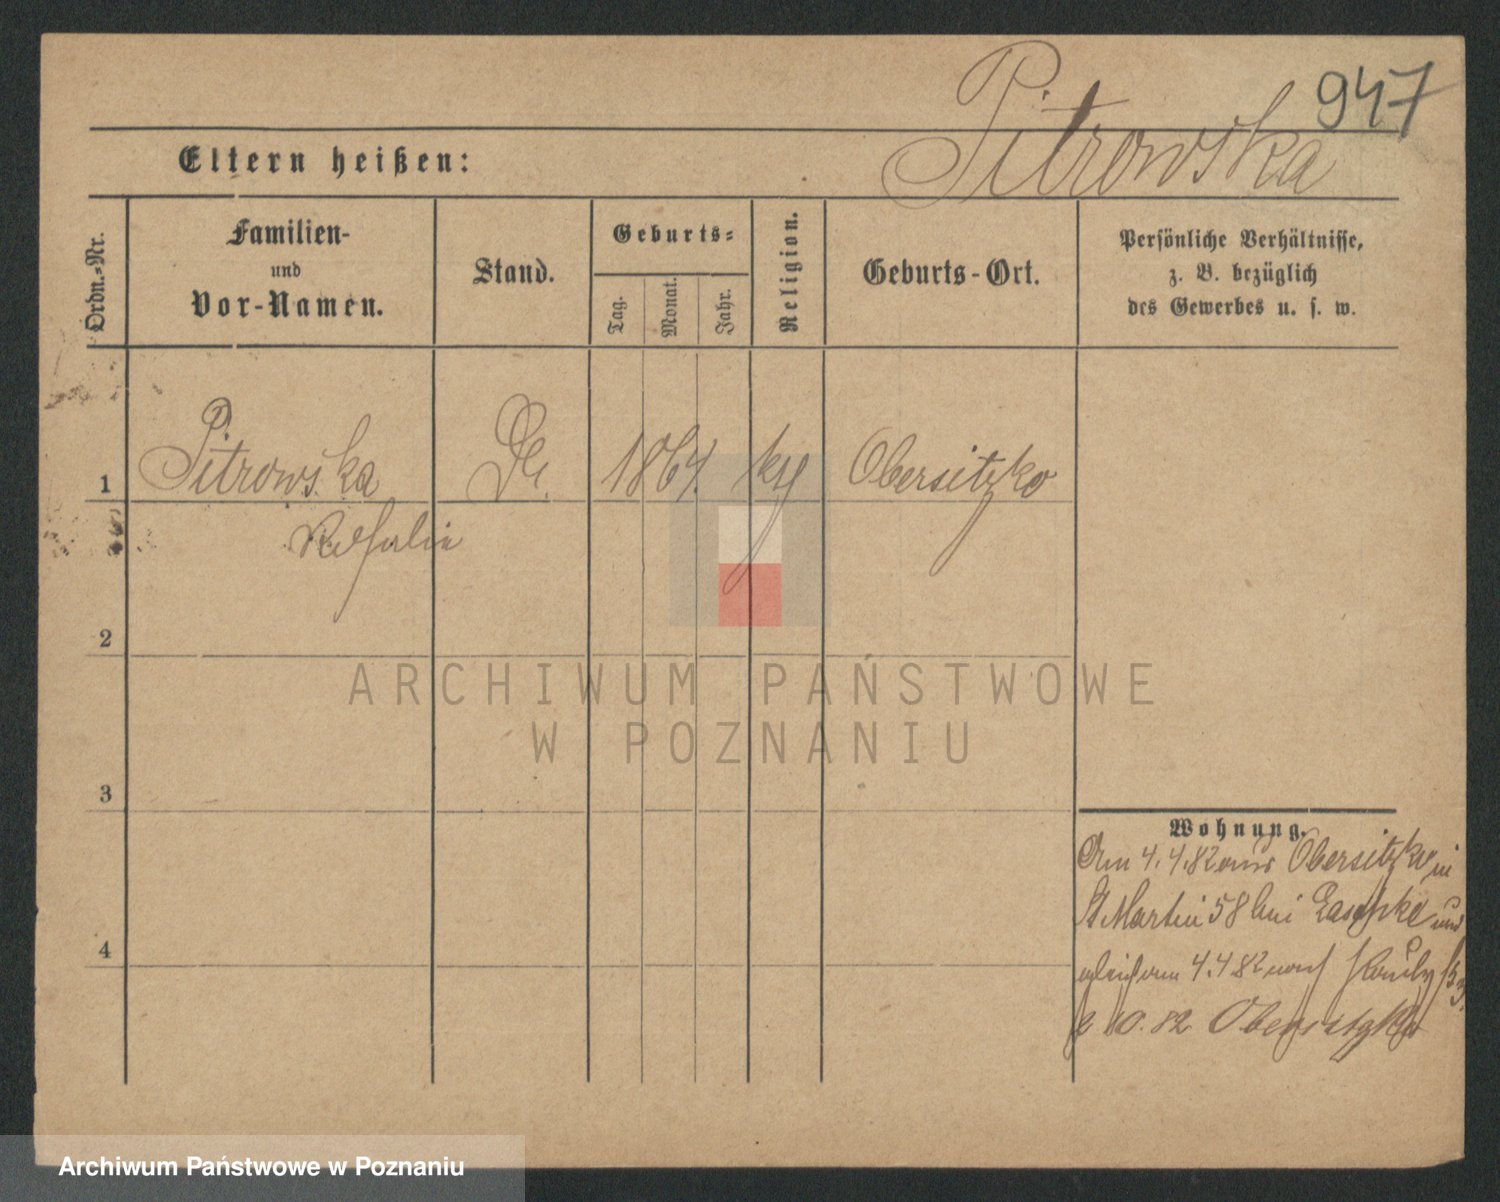 947
Pitrowska
Eltern heißen:
Ordn.-Nr.
Familien-
und
Vor-Namen.
Stand.
Geburts-
Tag.
Monat.
Jahr.
Religion.
Geburts-Ort.
Persönliche Verhältnisse,
z. B. bezüglich
des Gewerbes u. s. w.
1
Pitrowska
1864.
Obersitzko
2
3
4
ARCHIWUM PAŃSTWOWE
W POZNANIU
Wohnung.
Am 4.4.82 aus Obersitzko in
St Martin 58 bei und
4.4 82 nach
10.82 Obersitzko
Archiwum Państwowe w Poznaniu